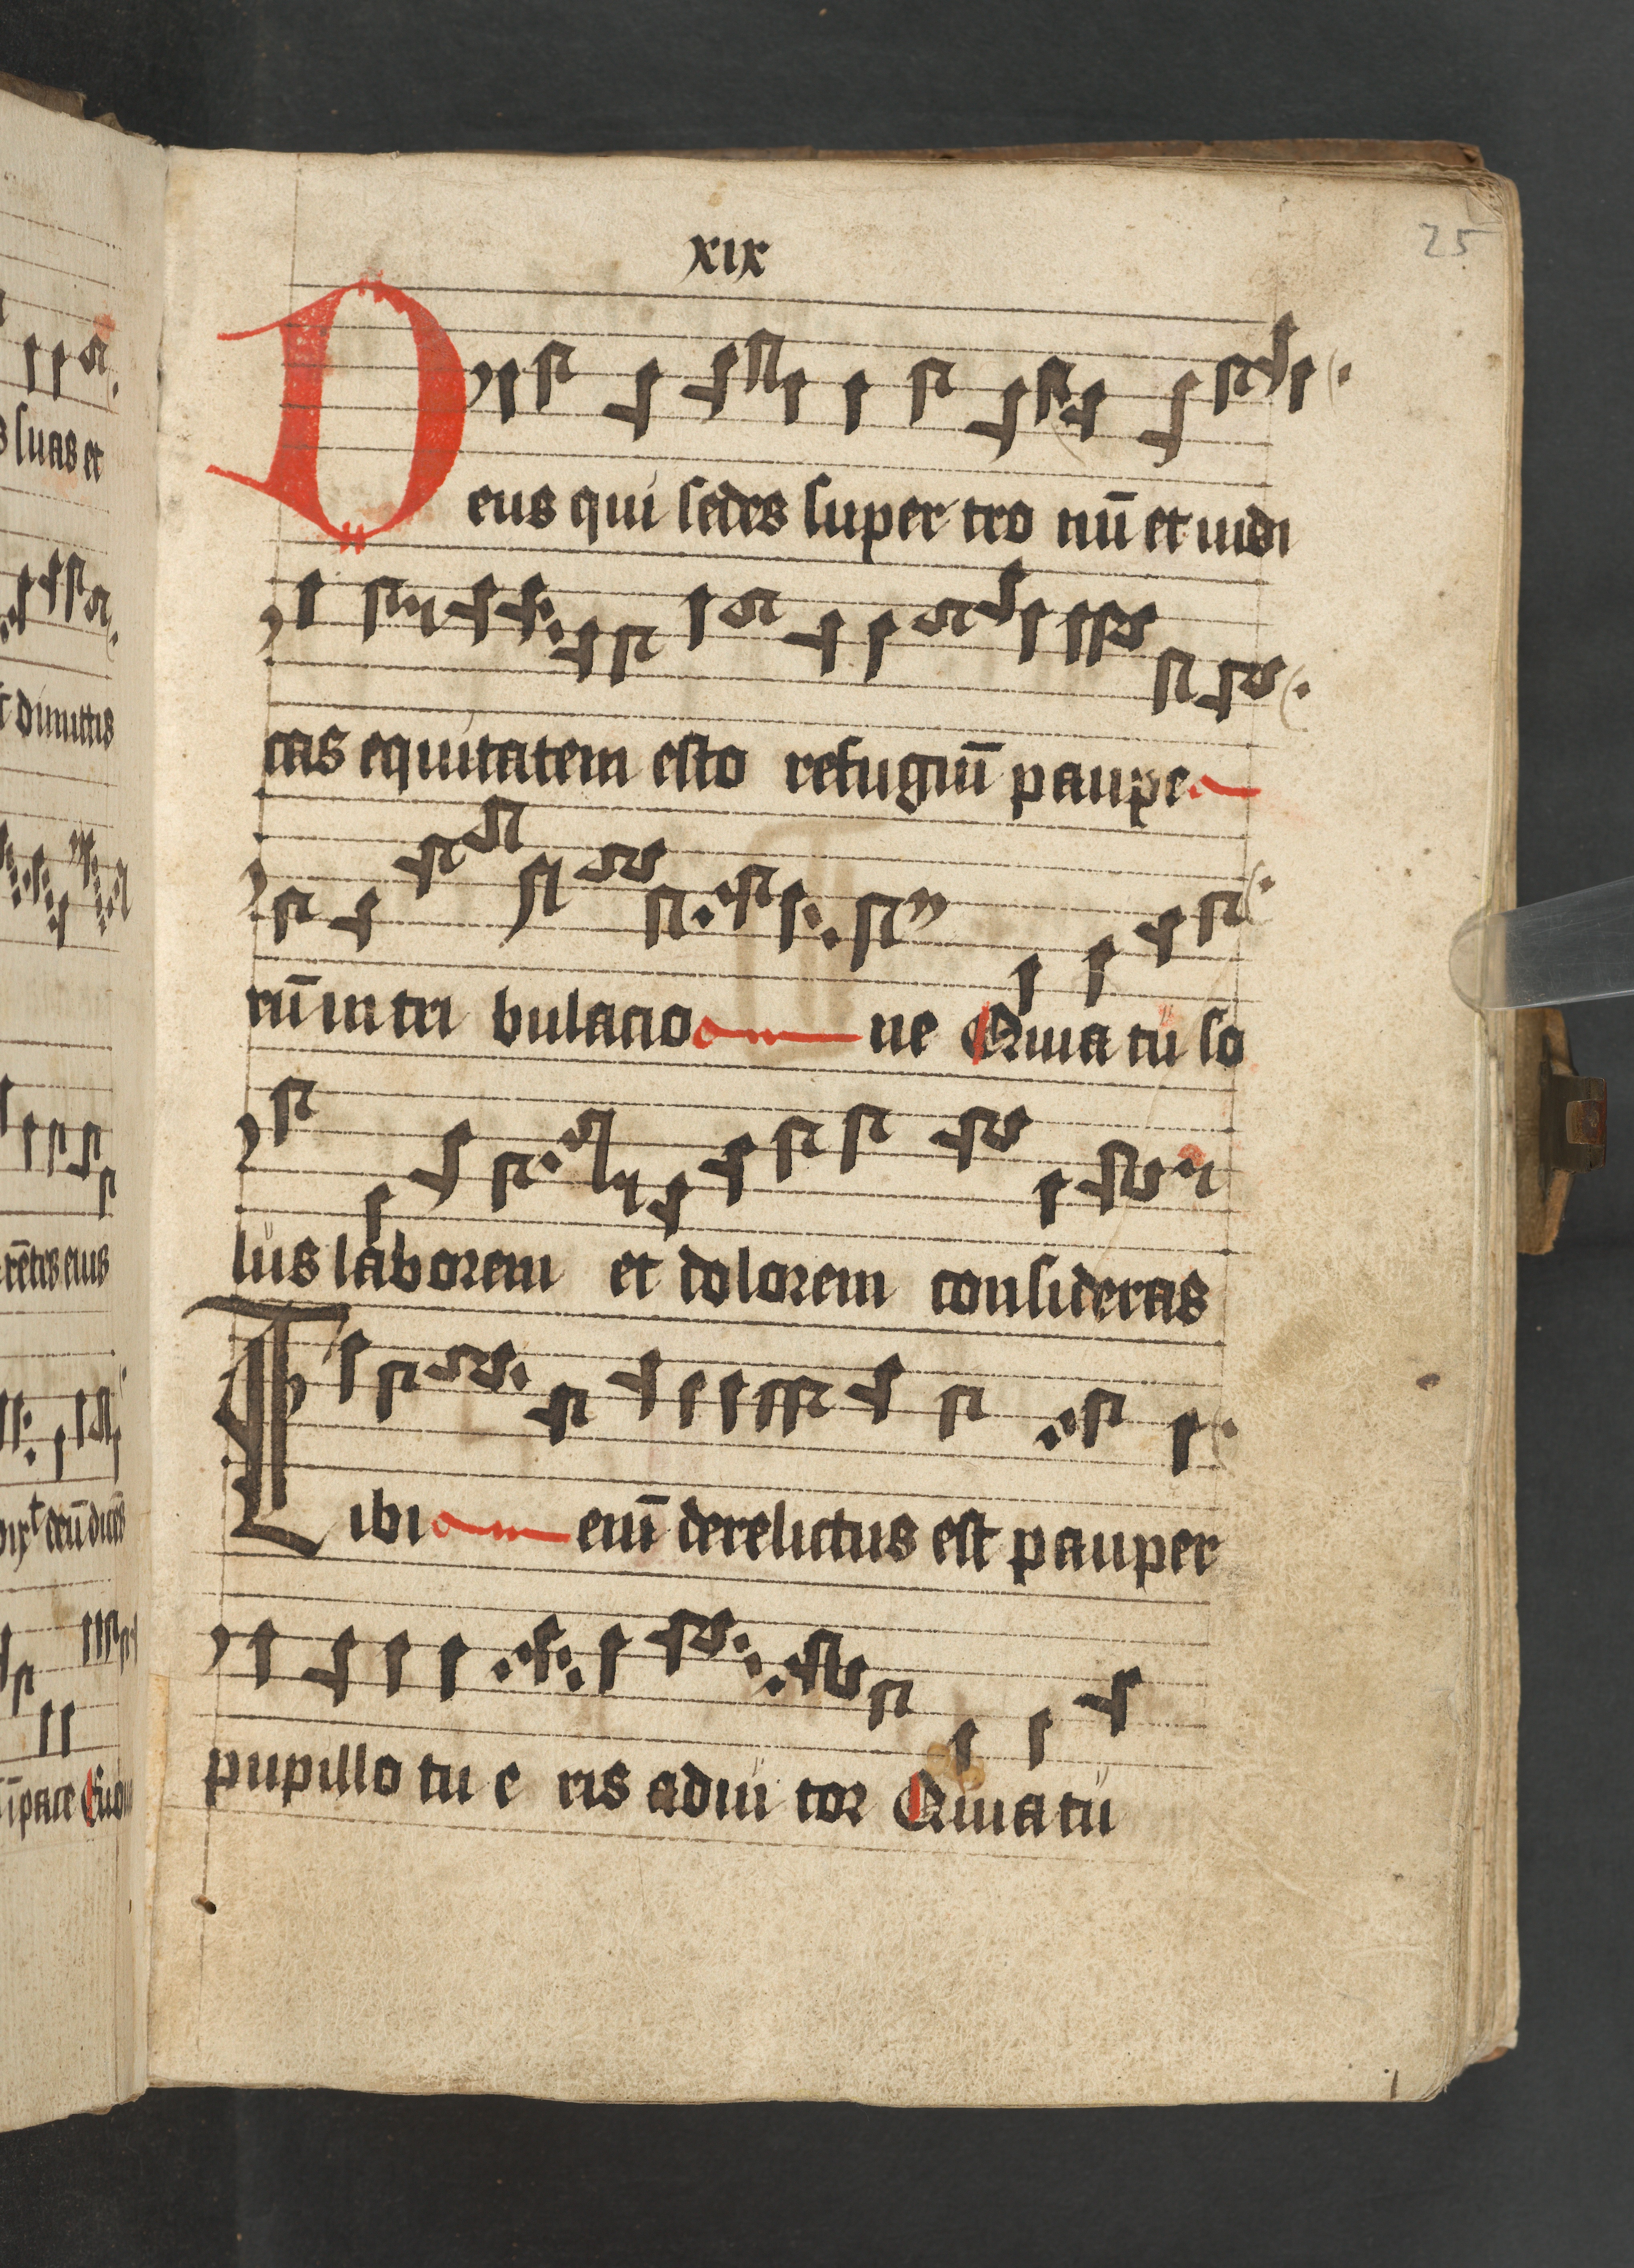 25
xix
Deus qui sedes super tro nū et iudi
cas equitatem esto refugiū paupe
rū in tri bulacio ne Quia tu so
lus laborem et dolorem consideras
Tibi enī derelictus est pauper
pupillo tu e ris adiu tor Quia tu
s suas et
t dimittis
rētes eius
dixt deū dicēs
ī pace